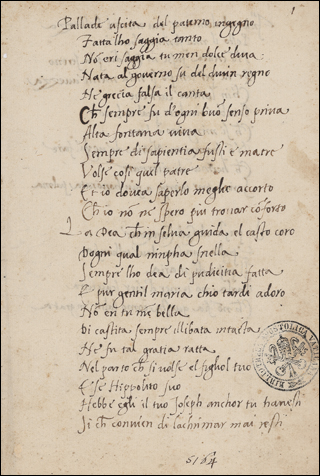 1
Pallade uscita del paterno ingegno
Fatta l'ho saggia tanto
No eri saggia tu men dolce diva
Nata al governo fu del divin regno
Ne grecia falsa il canta
Ch sempre fu d'ogni buo senso priva
Alta fontana viva
Sempre di sapientia fusti e matre
Volse cosi quel patre
Et io dovea saperlo meglio accorto
Ch io non ne spero piu trovar coforto
La Dea ch in selva guida el casto coro
D'ogni qual nimpha snella
Sempre l'ho dea di pudicitia fatta
E pur gentil maria ch'io tardi adoro
No en tu me bella
Di castita sempre illibata intatta
Ne fu tal gratia ratta
Nel parto ch si volse el figliol tuo
E se Hippolito suo
Hebbe egli il tuo Joseph anchor tu havesti
Si ch convien di lachrimar mai resti
5164